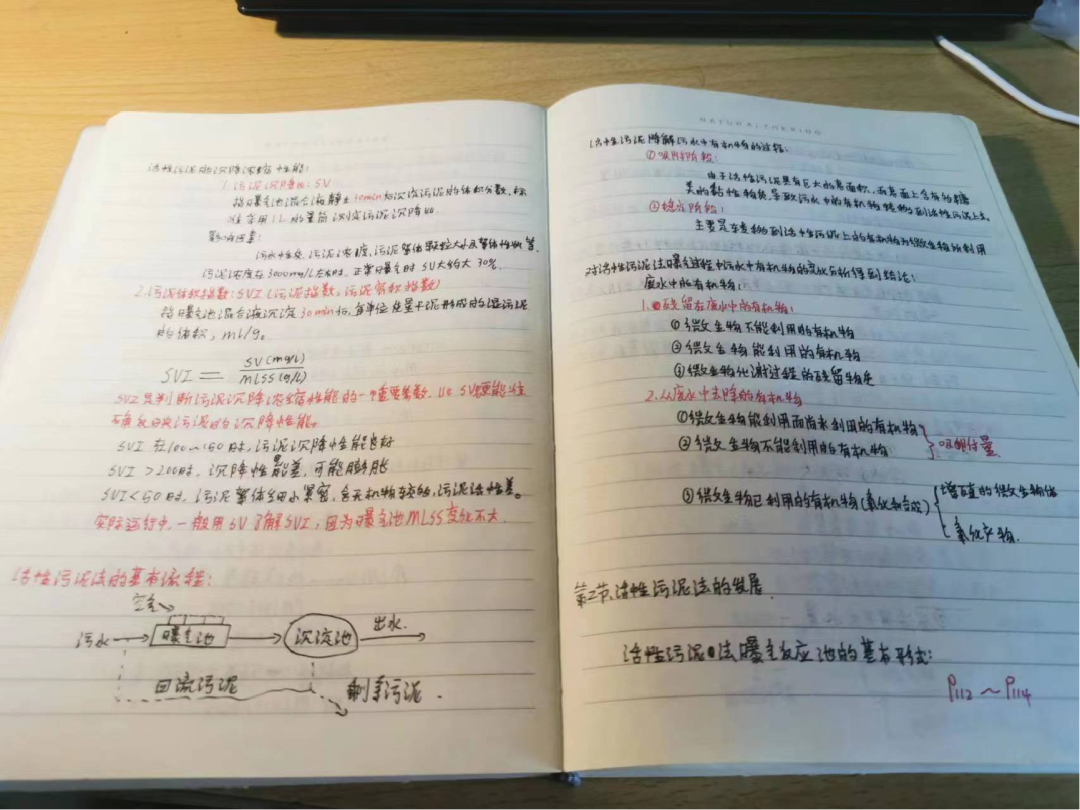 活性污泥的沉降浓缩性能:
1.污泥沉降比:SV
指曝气池混合液静止30min后沉淀污泥的体积分数,标
准采用1L的量筒测定污泥沉降比.
影响因素:
污水性质,污泥浓度,污泥絮体颗粒大小及絮体性状等.
污泥浓度在3000mg/L左右时,正常曝气时SV大约大30%.
2.污泥体积指数:SVI(污泥指数,污泥容积指数)
指曝气池混合液沉淀30min后,每单位质量干泥形成的湿污泥
的体积,ml/g.
SVI = SV(mg/L) / MLSS(g/L)
SVI是判断污泥沉降浓缩性能的一个重要参数,比SV更能准
确反映污泥的沉降性能.
SVI 在100~150时,污泥沉降性能良好
SVI >200时,沉降性能差,可能膨胀
SVI<50时,污泥絮体细小紧密,含无机物较多,污泥活性差.
实际运行中,一般用SV了解SVI,因为曝气池MLSS变化不大.
活性污泥法的基本流程:
空气
污水 曝气池 沉淀池 出水.
回流污泥 剩余污泥.
NATURALTHEKING
活性污泥降解污水中有机物的过程:
①吸附阶段:
由于活性污泥具有巨大的表面积,而表面上含有多糖
类的黏性物质,导致污水中的有机物转移到活性污泥上去.
②稳定阶段:
主要是转移到活性污泥上的有机物为微生物所利用
对活性污泥法曝气过程中污水中有机物的变化分析得到结论:
废水中的有机物:
1.残留在废水中的有机物:
①微生物不能利用的有机物
②微生物能利用的有机物
③微生物代谢过程的残留物质
2.从废水中去除的有机物
①微生物能利用而尚未利用的有机物
②微生物不能利用的有机物 吸附量
③微生物已利用的有机物(氧化和合成) 增殖的微生物体
氧化产物.
第二节、活性污泥法的发展.
活性污泥法曝气反应池的基本形式:
P112 ~ P114